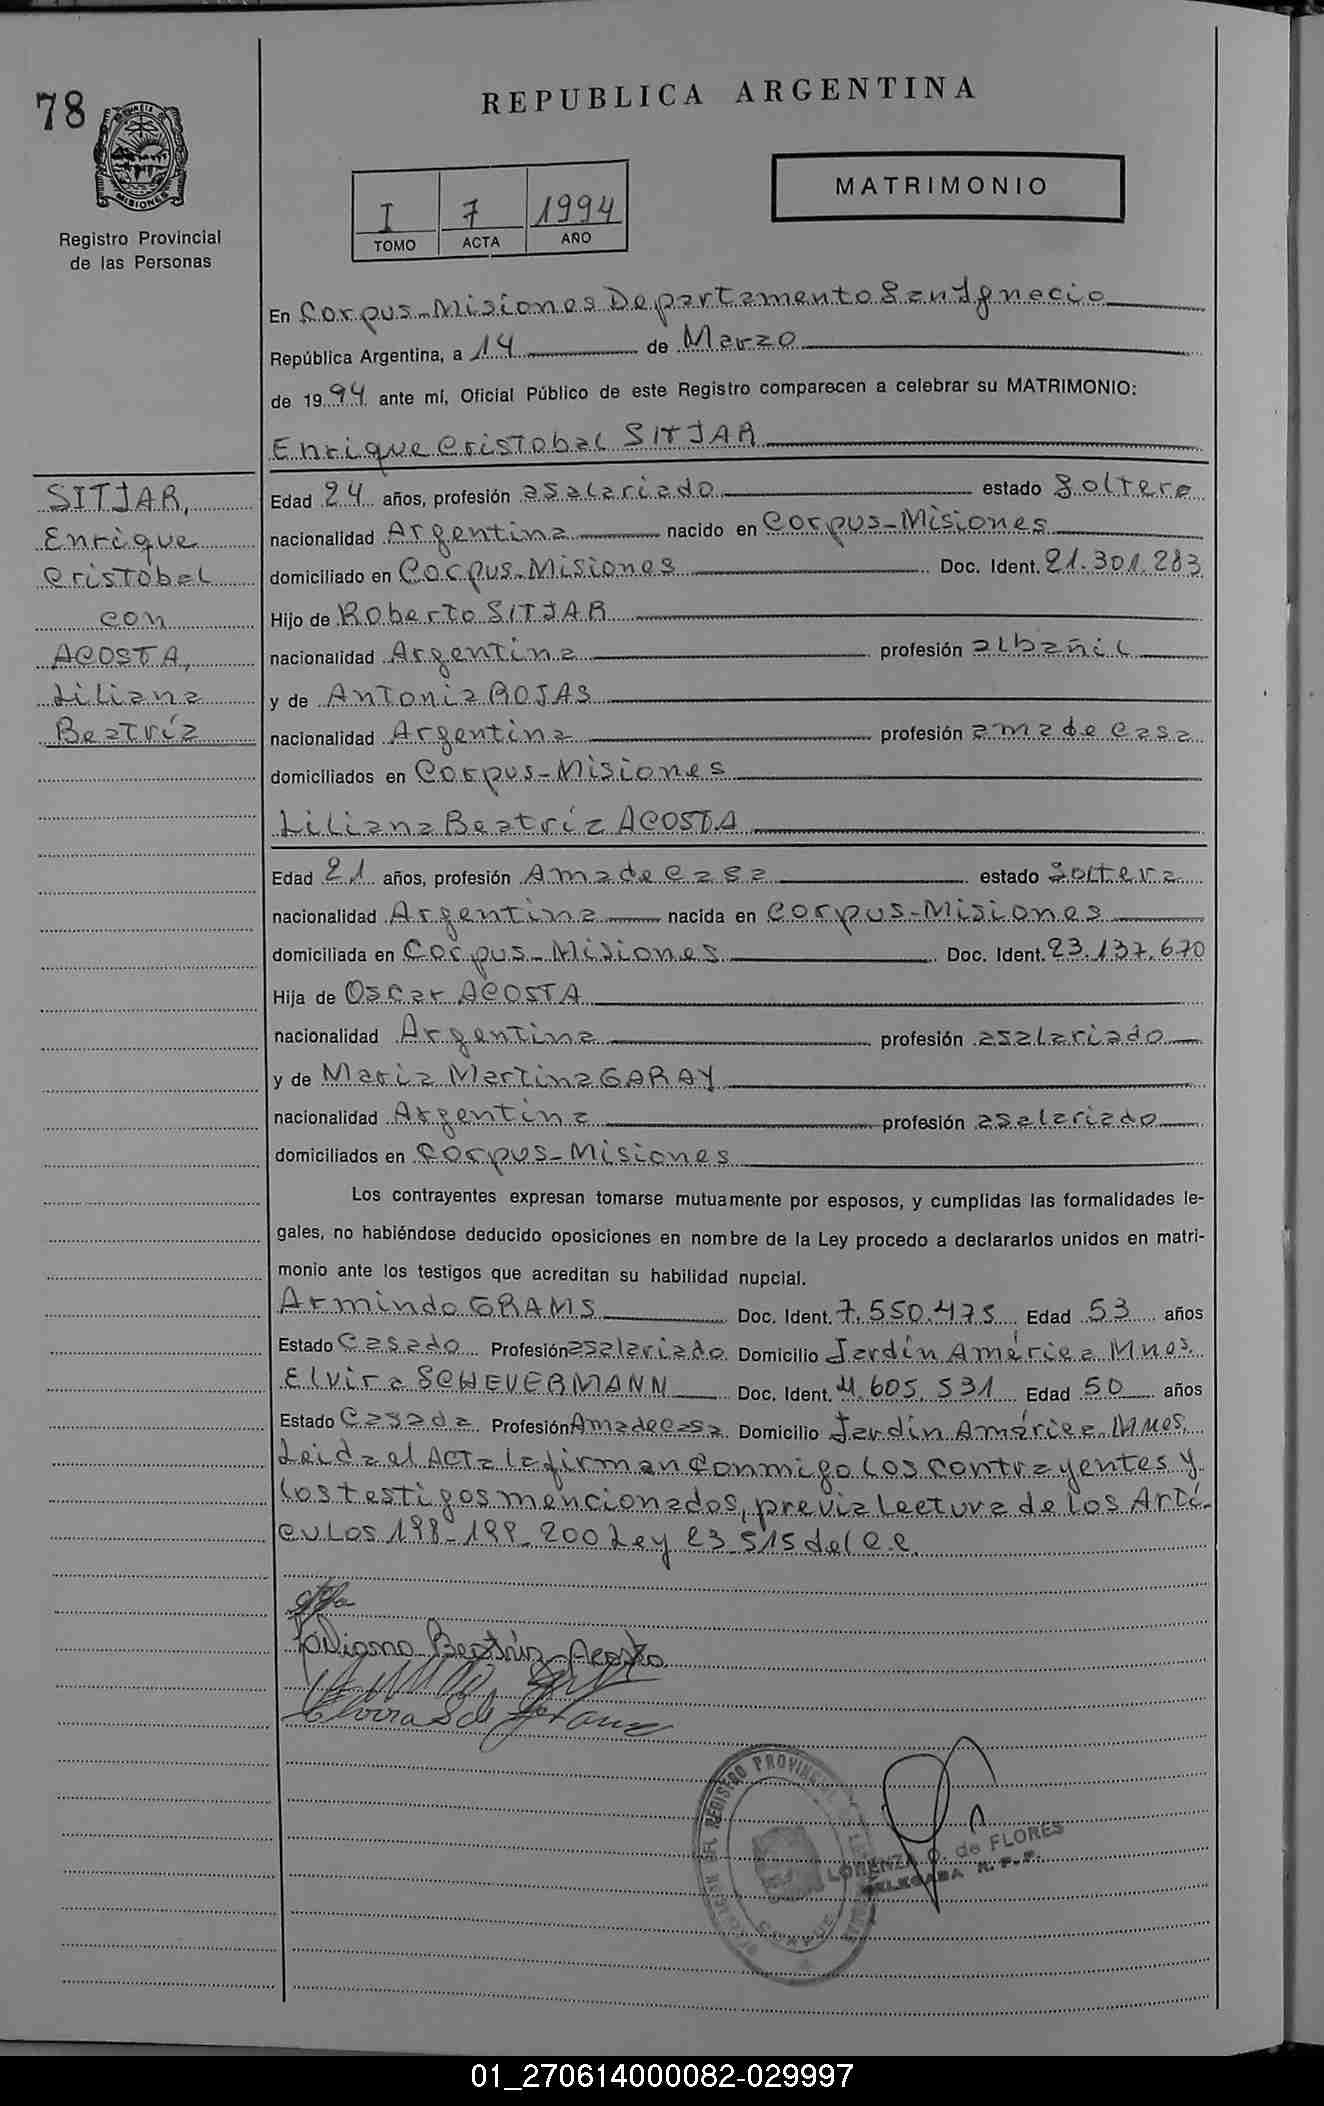 78
REPUBLICA ARGENTINA
MISIONES
Registro Provincial
de las Personas
I 7 1994
TOMO ACTA AÑO
MATRIMONIO
En Corpus-Misiones Departamento San Ignacio
República Argentina, a 14 de Marzo
de 1994 ante mí, Oficial Público de este Registro comparecen a celebrar su MATRIMONIO:
Enrique Cristobal SITJAR
SITJAR,
Enrique
Cristobal
con
ACOSTA,
Liliana
Beatríz
Edad 24 años, profesión asalariado estado Soltero
nacionalidad Argentina nacido en Corpus-Misiones
domiciliado en Corpus-Misiones Doc. Ident. 21.301.283
Hijo de Roberto SITJAR
nacionalidad Argentina profesión albañil
y de Antonia ROJAS
nacionalidad Argentina profesión ama de casa
domiciliados en Corpus-Misiones
Liliana Beatríz ACOSTA
Edad 21 años, profesión Ama de Casa estado Soltera
nacionalidad Argentina nacida en Corpus-Misiones
domiciliada en Corpus-Misiones Doc. Ident. 23.137.670
Hija de Oscar ACOSTA
nacionalidad Argentina profesión asalariado
y de Maria Martina GARAY
nacionalidad Argentina profesión asalariado
domiciliados en Corpus-Misiones
Los contrayentes expresan tomarse mutuamente por esposos, y cumplidas las formalidades le-
gales, no habiéndose deducido oposiciones en nombre de la Ley procedo a declararlos unidos en matri-
monio ante los testigos que acreditan su habilidad nupcial.
Armindo GRAMS Doc. Ident. 7.550.475 Edad 53 años
Estado Casado Profesión asalariado Domicilio Jardín América Mnes.
Elvira SCHEVERMANN Doc. Ident. 4.605.531 Edad 50 años
Estado Casada Profesión Ama de Casa Domicilio Jardín América Mnes.
Leida el Acta la firman Conmigo los contrayentes y
los testigos mencionados, previa lectura de los Artí-
culos 198-199-200 Ley 23.515 del C.C.
Liliana Beatríz Acosta
Elvira S de Grams
REGISTRO PROVINCIAL
LORENZA O. de FLORES
DELEGADA R.P.P.
01_270614000082-029997